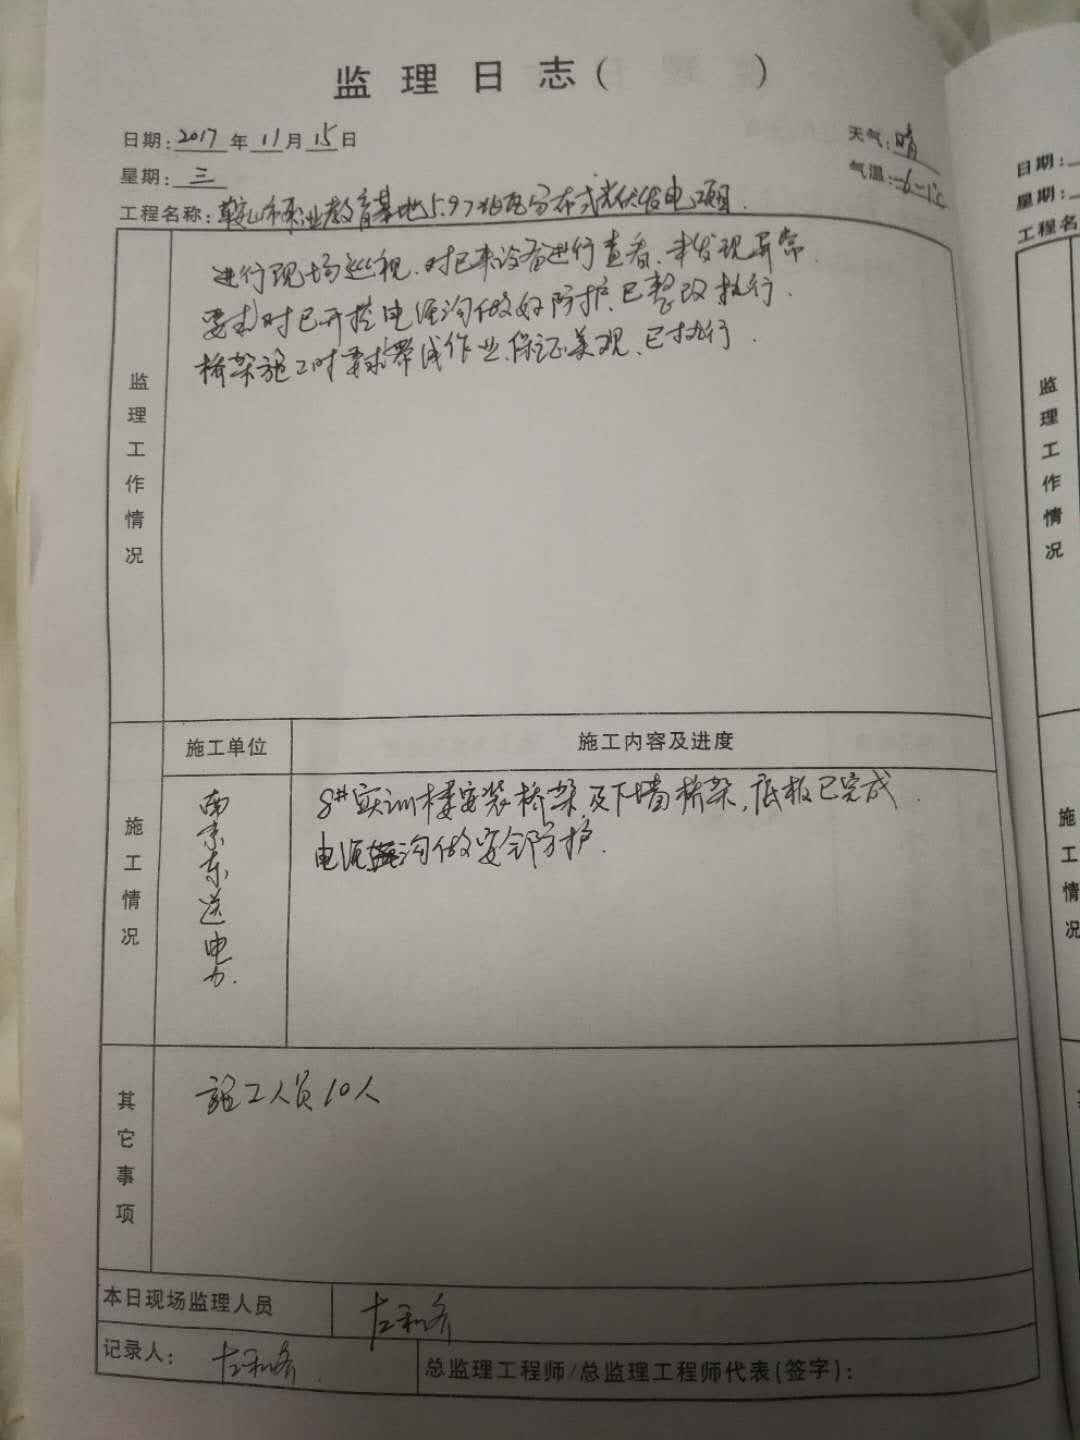 监理日志( )
日期:2017年11月15日
天气:晴
星期:三
气温:-6~1℃
工程名称:鞍山市职业教育基地5.97兆瓦分布式光伏发电项目.
监理工作情况
进行现场巡视.对已来设备进行查看、未发现异常.
要求对已开挖电缆沟做好防护、已整改执行.
桥架施工时要求带线作业、保证美观、已执行.
施工情况
施工单位
施工内容及进度
南京东送电力.
8#实训楼安装桥架及下墙桥架,底板已完成.
电缆沟做安全防护.
其它事项
施工人员10人
本日现场监理人员
记录人:
总监理工程师/总监理工程师代表(签字):
日期:
星期:
工程名
监理工作情况
施工情况